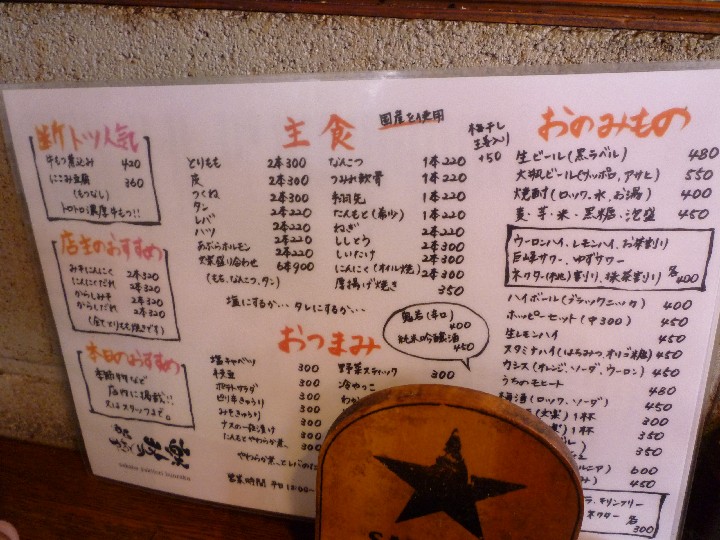 断トツ人気
牛もつ煮込み 420
にこみ豆腐 360
(もつなし)
トロトロ濃厚牛もつ!!
店主のおすすめ
みそにんにく 2本320
にんにくだれ 2本320
からしみそ 2本320
からしだれ 2本320
(全てとりもも焼きです)
本日のおすすめ
季節物など
店内に掲載!!
又はスタッフまで。
主食
国産を使用
とりもも 2本300
皮 2本300
つくね 2本300
タン 2本220
レバ 2本220
ハツ 2本220
あぶらホルモン 2本220
盛り合わせ 6本900
(もも、なんこつ、タン)
なんこつ 1本220
つみれ軟骨 1本220
手羽先 1本220
たんもと(希少) 1本220
ねぎ 2本220
ししとう 2本220
しいたけ 2本300
にんにく(オイル焼) 2本300
厚揚げ焼き 350
塩にするか… タレにするか…
おつまみ
塩キャベツ 300
枝豆 300
ポテトサラダ 300
ピリ辛きゅうり 300
みそきゅうり 300
ナスの一夜漬け 300
たんもとやわらか煮
営業時間 平日
野菜スティック 300
冷やっこ
鬼若(辛口) 400
純米吟醸酒 450
おのみもの
梅干し
生姜入り
+50
生ビール(黒ラベル) 480
大瓶ビール(サッポロ、アサヒ) 550
焼酎(ロック、水、お湯) 400
麦・芋・米・黒糖・泡盛 450
ウーロンハイ、レモンハイ、お茶割り
巨峰サワー、ゆずサワー
ネクター(桃)割り、抹茶割り 各400
ハイボール(ブラックニッカ) 400
ホッピーセット(中300) 450
生レモンハイ 450
スタミナハイ(はちみつ、オリゴ糖) 450
カシス(オレンジ、ソーダ、ウーロン) 450
うちのモヒート 480
梅酒(ロック、ソーダ) 450
1杯 300
1杯 350
350
600
450
キリンフリー
ネクター 各300